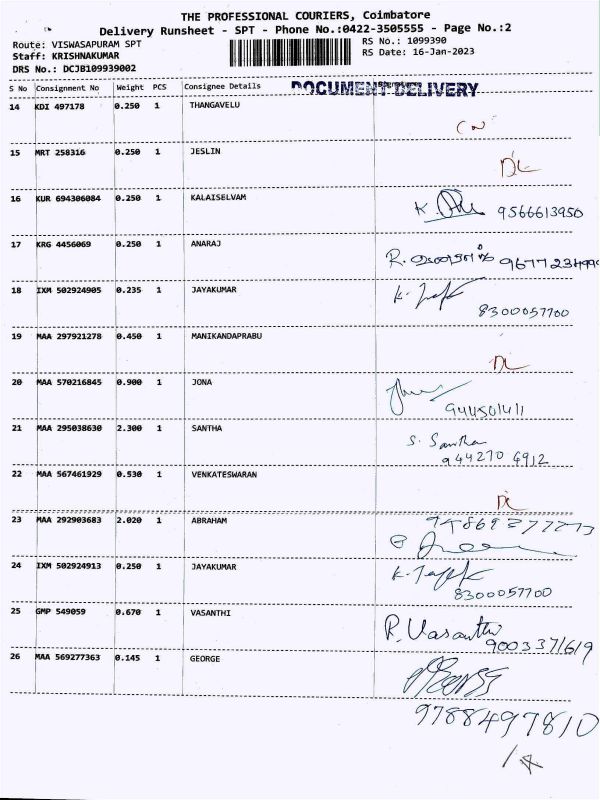 THE PROFESSIONAL COURIERS, Coimbatore
Delivery Runsheet - SPT - Phone No.:0422-3505555 - Page No.:2
Route: VISWASAPURAM SPT RS No.: 1099390
Staff: KRISHNAKUMAR RS Date: 16-Jan-2023
DRS No.: DCJB109939002
S No Consignment No Weight PCS Consignee Details DOCUMENT DELIVERY
14 KDI 497178 0.250 1 THANGAVELU
15 MRT 258316 0.250 1 JESLIN
DL
16 KUR 694306084 0.250 1 KALAISELVAM
K. 9566613950
17 KRG 4456069 0.250 1 ANARAJ
R.
18 IXM 502924905 0.235 1 JAYAKUMAR
8300057700
19 MAA 297921278 0.450 1 MANIKANDAPRABU
DL
20 MAA 570216845 0.900 1 JONA
21 MAA 295038630 2.300 1 SANTHA
S. Santha
944270 4912
22 MAA 567461929 0.530 1 VENKATESWARAN
DL
23 MAA 292903683 2.020 1 ABRAHAM
24 IXM 502924913 0.250 1 JAYAKUMAR
8300057700
25 GMP 549059 0.670 1 VASANTHI
R. Vasanthi
9003371619
26 MAA 569277363 0.145 1 GEORGE
9788497810